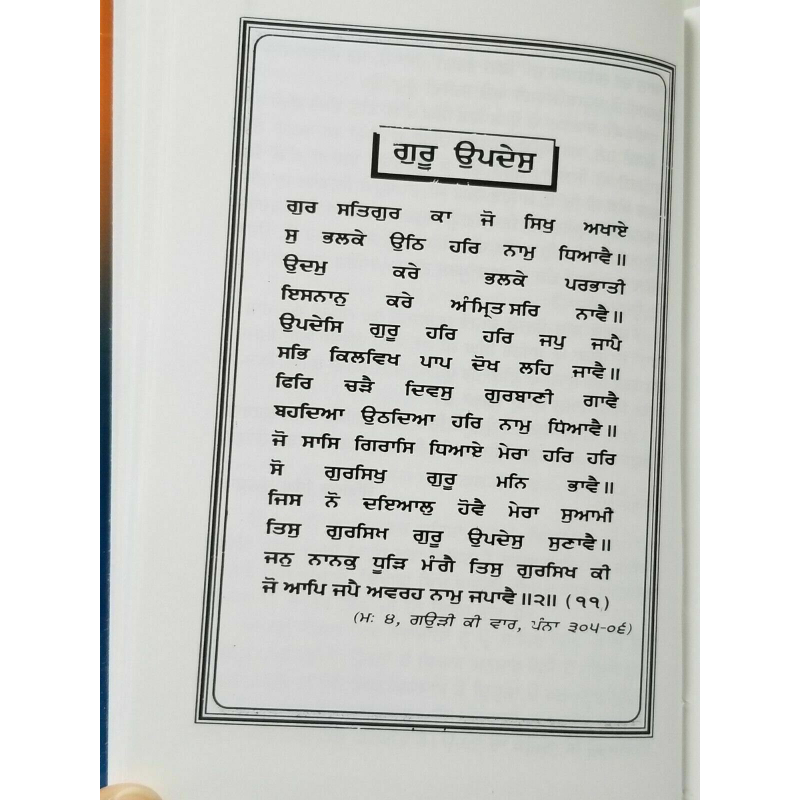 ਗੁਰੂ ਉਪਦੇਸੁ
ਗੁਰ ਸਤਿਗੁਰ ਕਾ ਜੋ ਸਿਖੁ ਅਖਾਏ
ਸੁ ਭਲਕੇ ਉਠਿ ਹਰਿ ਨਾਮੁ ਧਿਆਵੈ॥
ਉਦਮੁ ਕਰੇ ਭਲਕੇ ਪਰਭਾਤੀ
ਇਸਨਾਨੁ ਕਰੇ ਅੰਮ੍ਰਿਤਸਰਿ ਨਾਵੈ॥
ਉਪਦੇਸਿ ਗੁਰੂ ਹਰਿ ਹਰਿ ਜਪੁ ਜਾਪੈ
ਸਭਿ ਕਿਲਵਿਖ ਪਾਪ ਦੋਖ ਲਹਿ ਜਾਵੈ॥
ਫਿਰਿ ਚੜੈ ਦਿਵਸੁ ਗੁਰਬਾਣੀ ਗਾਵੈ
ਬਹਦਿਆ ਉਠਦਿਆ ਹਰਿ ਨਾਮੁ ਧਿਆਵੈ॥
ਜੋ ਸਾਸਿ ਗਿਰਾਸਿ ਧਿਆਏ ਮੇਰਾ ਹਰਿ ਹਰਿ
ਸੋ ਗੁਰਸਿਖੁ ਗੁਰੂ ਮਨਿ ਭਾਵੈ॥
ਜਿਸ ਨੋ ਦਇਆਲੁ ਹੋਵੈ ਮੇਰਾ ਸੁਆਮੀ
ਤਿਸੁ ਗੁਰਸਿਖ ਗੁਰੂ ਉਪਦੇਸੁ ਸੁਣਾਵੈ॥
ਜਨੁ ਨਾਨਕੁ ਧੂੜਿ ਮੰਗੈ ਤਿਸੁ ਗੁਰਸਿਖ ਕੀ
ਜੋ ਆਪਿ ਜਪੈ ਅਵਰਹ ਨਾਮੁ ਜਪਾਵੈ॥੨॥ (੧੧)
(ਮ: ੪, ਗਉੜੀ ਕੀ ਵਾਰ, ਪੰਨਾ ੩੦੫-੦੬)